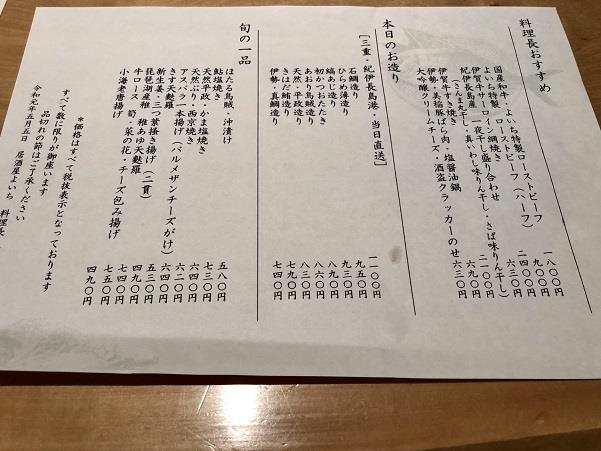 料理長おすすめ
国産和牛・よいち特製ローストビーフ 一八〇〇円
よいち特製・ローストビーフ（ハーフ） 九〇〇円
伊賀牛サーロイン網焼き 二四〇〇円
伊賀産・一夜干し盛り合わせ
（さんま丸干し・真いわし味りん干し・さば味りん干し）
伊賀牛すき焼き 二一〇〇円
伊勢・美稲豚ばら肉・塩醤油鍋
大吟醸クリームチーズ・酒盗クラッカーのせ 六三〇円
本日のお造り
［三重・紀伊長島港・当日直送］
石鯛造り 一一〇〇円
ひらめ薄造り 九五〇円
縞あじ造り 九三〇円
初かつおたたき 八九〇円
あおり烏賊造り 八六〇円
天然・平政造り 八三〇円
きはだ鮪造り 七九〇円
伊勢・真鯛造り 七六〇円
旬の一品
ほたる烏賊・沖漬け 五八〇円
鮎塩焼き
天然平政・かま塩焼き 七三〇円
天然ぶり・西京焼き 六四〇円
アスパラ一本揚げ（パルメザンチーズがけ） 六二〇円
きす天麩羅 六四〇円
新生姜・三つ葉掻き揚げ（二貫） 五三〇円
琵琶湖産稚あゆ天麩羅 四九〇円
牛ロース 筍・菜の花・チーズ包み揚げ 七四〇円
小海老唐揚げ 四九〇円
＊価格はすべて税抜表示となっております
すべて数に限りが御座います
品切れの節はご了承ください
令和元年五月五日 居酒屋よいち 料理長